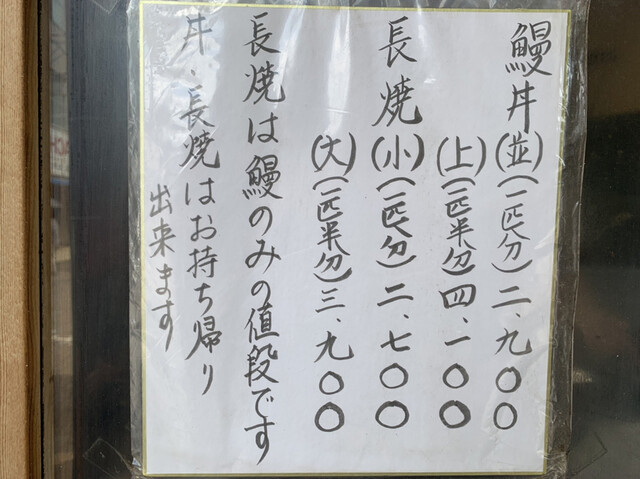 鰻丼(並)(一匹分)二、九〇〇
(上)(一匹半分)四、一〇〇
長焼(小)(一匹分)二、七〇〇
(大)(一匹半分)三、九〇〇
長焼は鰻のみの値段です
丼、長焼はお持ち帰り
出来ます